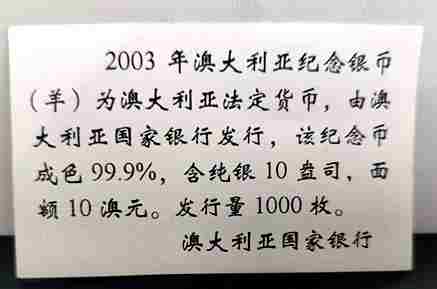 2003 年澳大利亚纪念银币
（羊）为澳大利亚法定货币，由澳
大利亚国家银行发行，该纪念币
成色 99.9%，含纯银 10 盎司，面
额 10 澳元。发行量 1000 枚。
澳大利亚国家银行